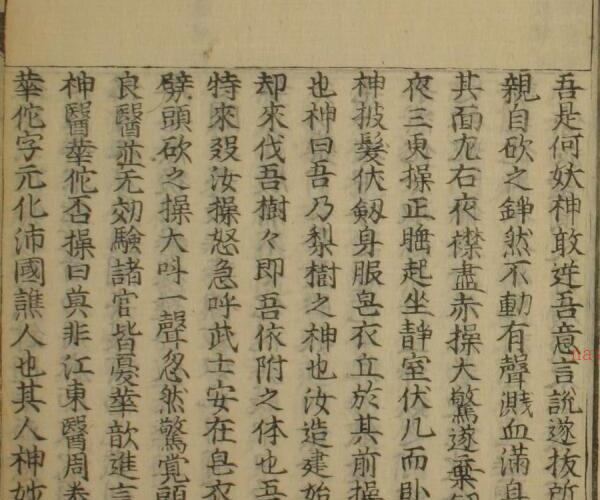 吾是何妖神敢逆吾意言說遂拔所
親自砍之錚然不動有聲濺血滿身
其面左右夜襟盡赤操大驚遂棄
夜三更操正睡起坐靜室伏几而卧
神披髮伏劔身服皂衣立於其前操
也神曰吾乃梨樹之神也汝造建始
却來伐吾樹々即吾依附之体也吾
特來殺汝操怒急呼武士安在皂衣
劈頭砍之操大呌一聲忽然驚覺頭
良醫並无効驗諸官皆憂華歆進言
神醫華佗否操曰莫非江東醫周泰
華佗字元化沛國譙人也其人神妙